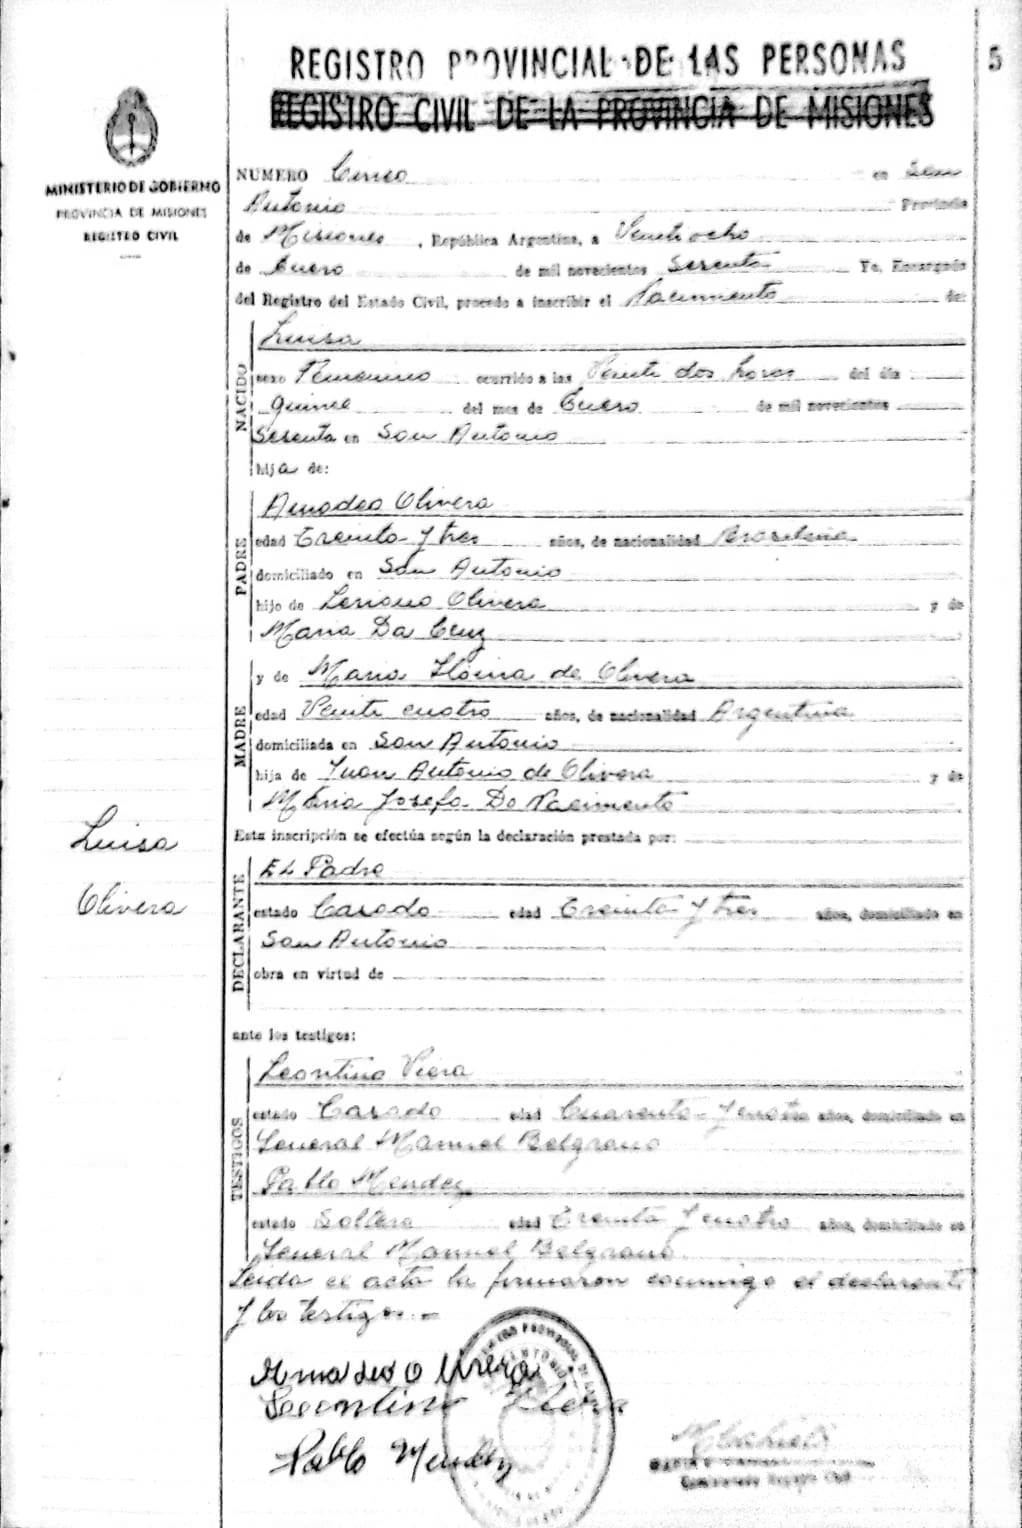 5
REGISTRO PROVINCIAL DE LAS PERSONAS
REGISTRO CIVIL DE LA PROVINCIA DE MISIONES
MINISTERIO DE GOBIERNO
PROVINCIA DE MISIONES
REGISTRO CIVIL
NUMERO Cinco en San
Antonio Provincia
de Misiones, República Argentina, a Veintiocho
de Enero de mil novecientos Sesenta Yo, Encargado
del Registro del Estado Civil, procedo a inscribir el Nacimiento de:
NACIDO
Luisa
sexo Femenino ocurrido a las Veinte dos horas del día
quince del mes de Enero de mil novecientos
Sesenta en San Antonio
hija de:
PADRE
Amadeo Olivera
edad Treinta y tres años, de nacionalidad Brasileña
domiciliado en San Antonio
hijo de Olivera y de
Maria Da Cruz
MADRE
y de Maria de Olivera
edad Veinte cuatro años, de nacionalidad Argentina
domiciliada en San Antonio
hija de Juan Antonio de Olivera y de
Maria Josefa Do Nacimento
Luisa
Olivera
Esta inscripción se efectúa según la declaración prestada por:
DECLARANTE
EL Padre
estado Casado edad Treinta y tres años, domiciliado en
San Antonio
obra en virtud de
ante los testigos:
TESTIGOS
Leontino Viera
estado Casado edad Cuarenta y cuatro años, domiciliado en
General Manuel Belgrano
Pablo Mendez
estado Soltero edad Treinta y cuatro años, domiciliado en
General Manuel Belgrano
Leida el acta la firmaron conmigo el declarante
y los testigos.-
Amadeo Olivera
Leontino Viera
Pablo Mendez